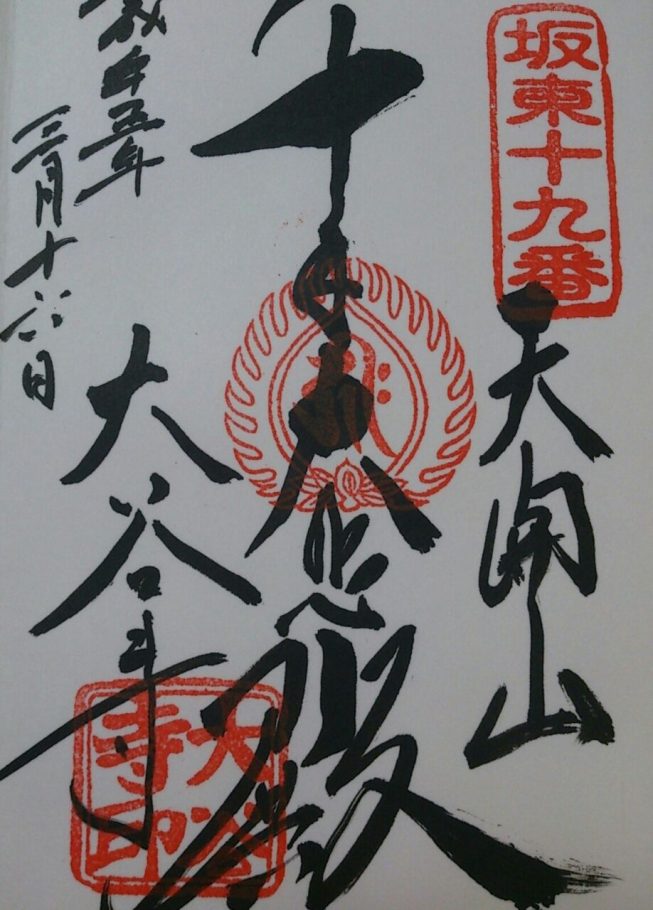 坂東十九番
天開山
千手大悲殿
大谷寺
大谷寺印
五年
三月十六日